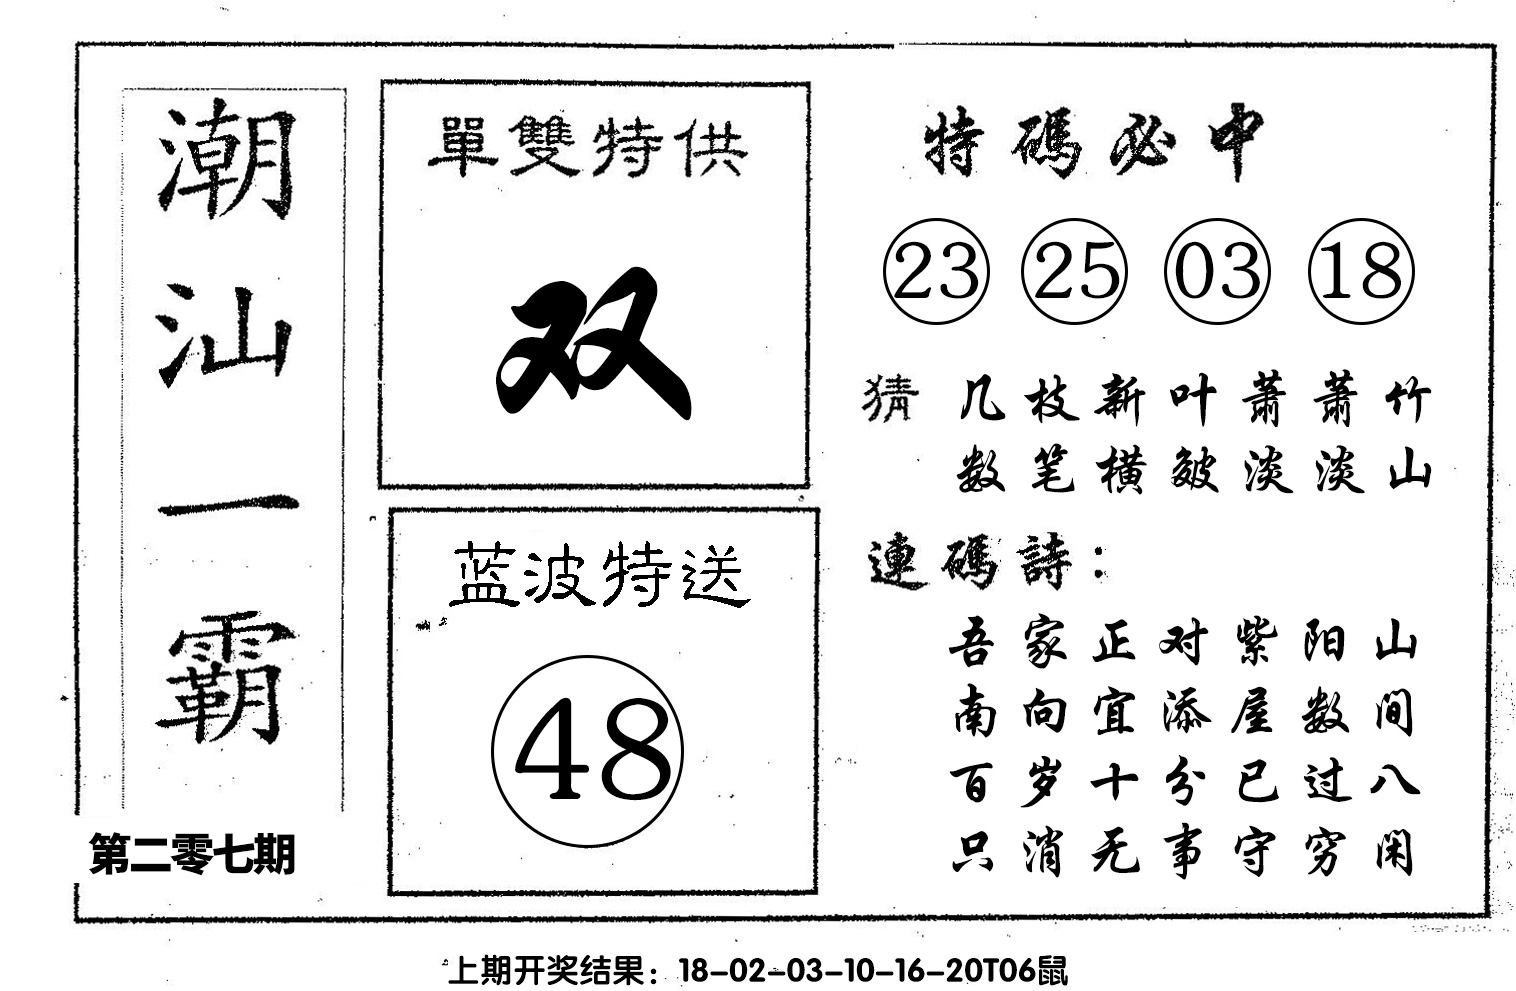 潮汕一霸
第二零七期
單雙特供
双
蓝波特送
48
特碼必中
23 25 03 18
猜 几枝新叶萧萧竹
数笔横皴淡淡山
連碼詩：
吾家正对紫阳山
南向宜添屋数间
百岁十分已过八
只消无事守穷闲
上期开奖结果：18-02-03-10-16-20T06鼠